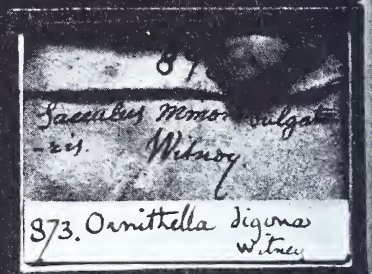 87
Sacculus Minor Vulga
-ris.
Witney
873. Ornithella digona
Witney